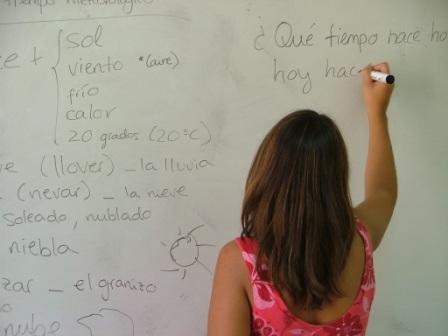 tiempo meteorológico
+ sol
viento *(aire)
frío
calor
20 grados (20ºC)
(llover) _ la lluvia
(nevar) _ la nieve
soleado, nublado
niebla
_ el granizo
¿Qué tiempo hace ho
hoy hac